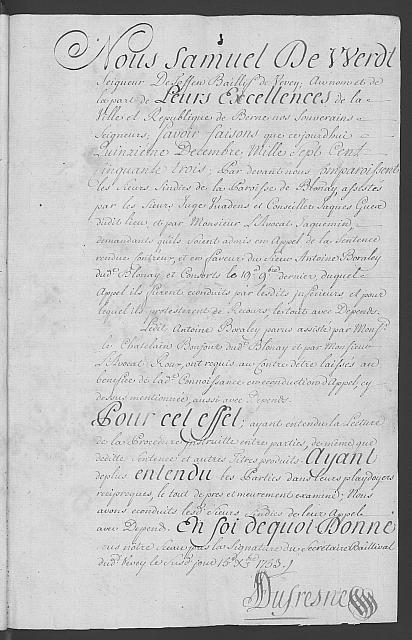 Nous Samuel De VVerdt
Seigneur De Toffen Baillif de Vevey; Au nom et de
la part de Leurs Excellences de la
Ville et Republique de Berne nos Souverains
Seigneurs; savoir faisons que cejourdhui
Quinzieme Decembre Mille Sept Cent
Cinquante trois; Par devant nous comparoissent
les Sieurs Sindics de la Paroisse de Blonay, assistés
par les Sieurs Juge et Conseiller Jaques
dudit lieu, et par Monsieur L'Avocat Jaquemin,
demandants qu'ils soient admis en Appel de la Sentence
rendue contr'eux, et en faveur du Sieur Antoine Boraley
dud.t Blonay et Consorts le 19.e 9bre dernier, duquel
Appel ils furent econduits par lesdits inferieurs et pour
lequel ils protesterent de Recours, le tout avec Depends.
Ledit Antoine Boraley parus assisté par Mons.r
le Chatelain Bonfort dud.t Blonay et par Monsieur
L'Avocat Roux, ont requis au contre detre laissés au
benefice de lad.e Connoissance en econduction d'Appel cy
dessus mentionnée, aussi avec Depends.
Pour cet effet; ayant entendu la Lecture
de la Procedure instruitte entre parties, de meme que
dedite Sentence et autres Titres produits. Ayant
deplus entendu les Parties dans leurs plaidoyers
reciproques, le tout de pres et meurement examiné, Nous
avons econduits lesd.ts Sieurs Sindics de leur Appel
avec Depend. En foi de quoi Donné
sous notre Sceau sous la Signature du Secretaire Baillival
dud.t Vevey le susd.t jour 15.e Xbre 1753.
Dufresne